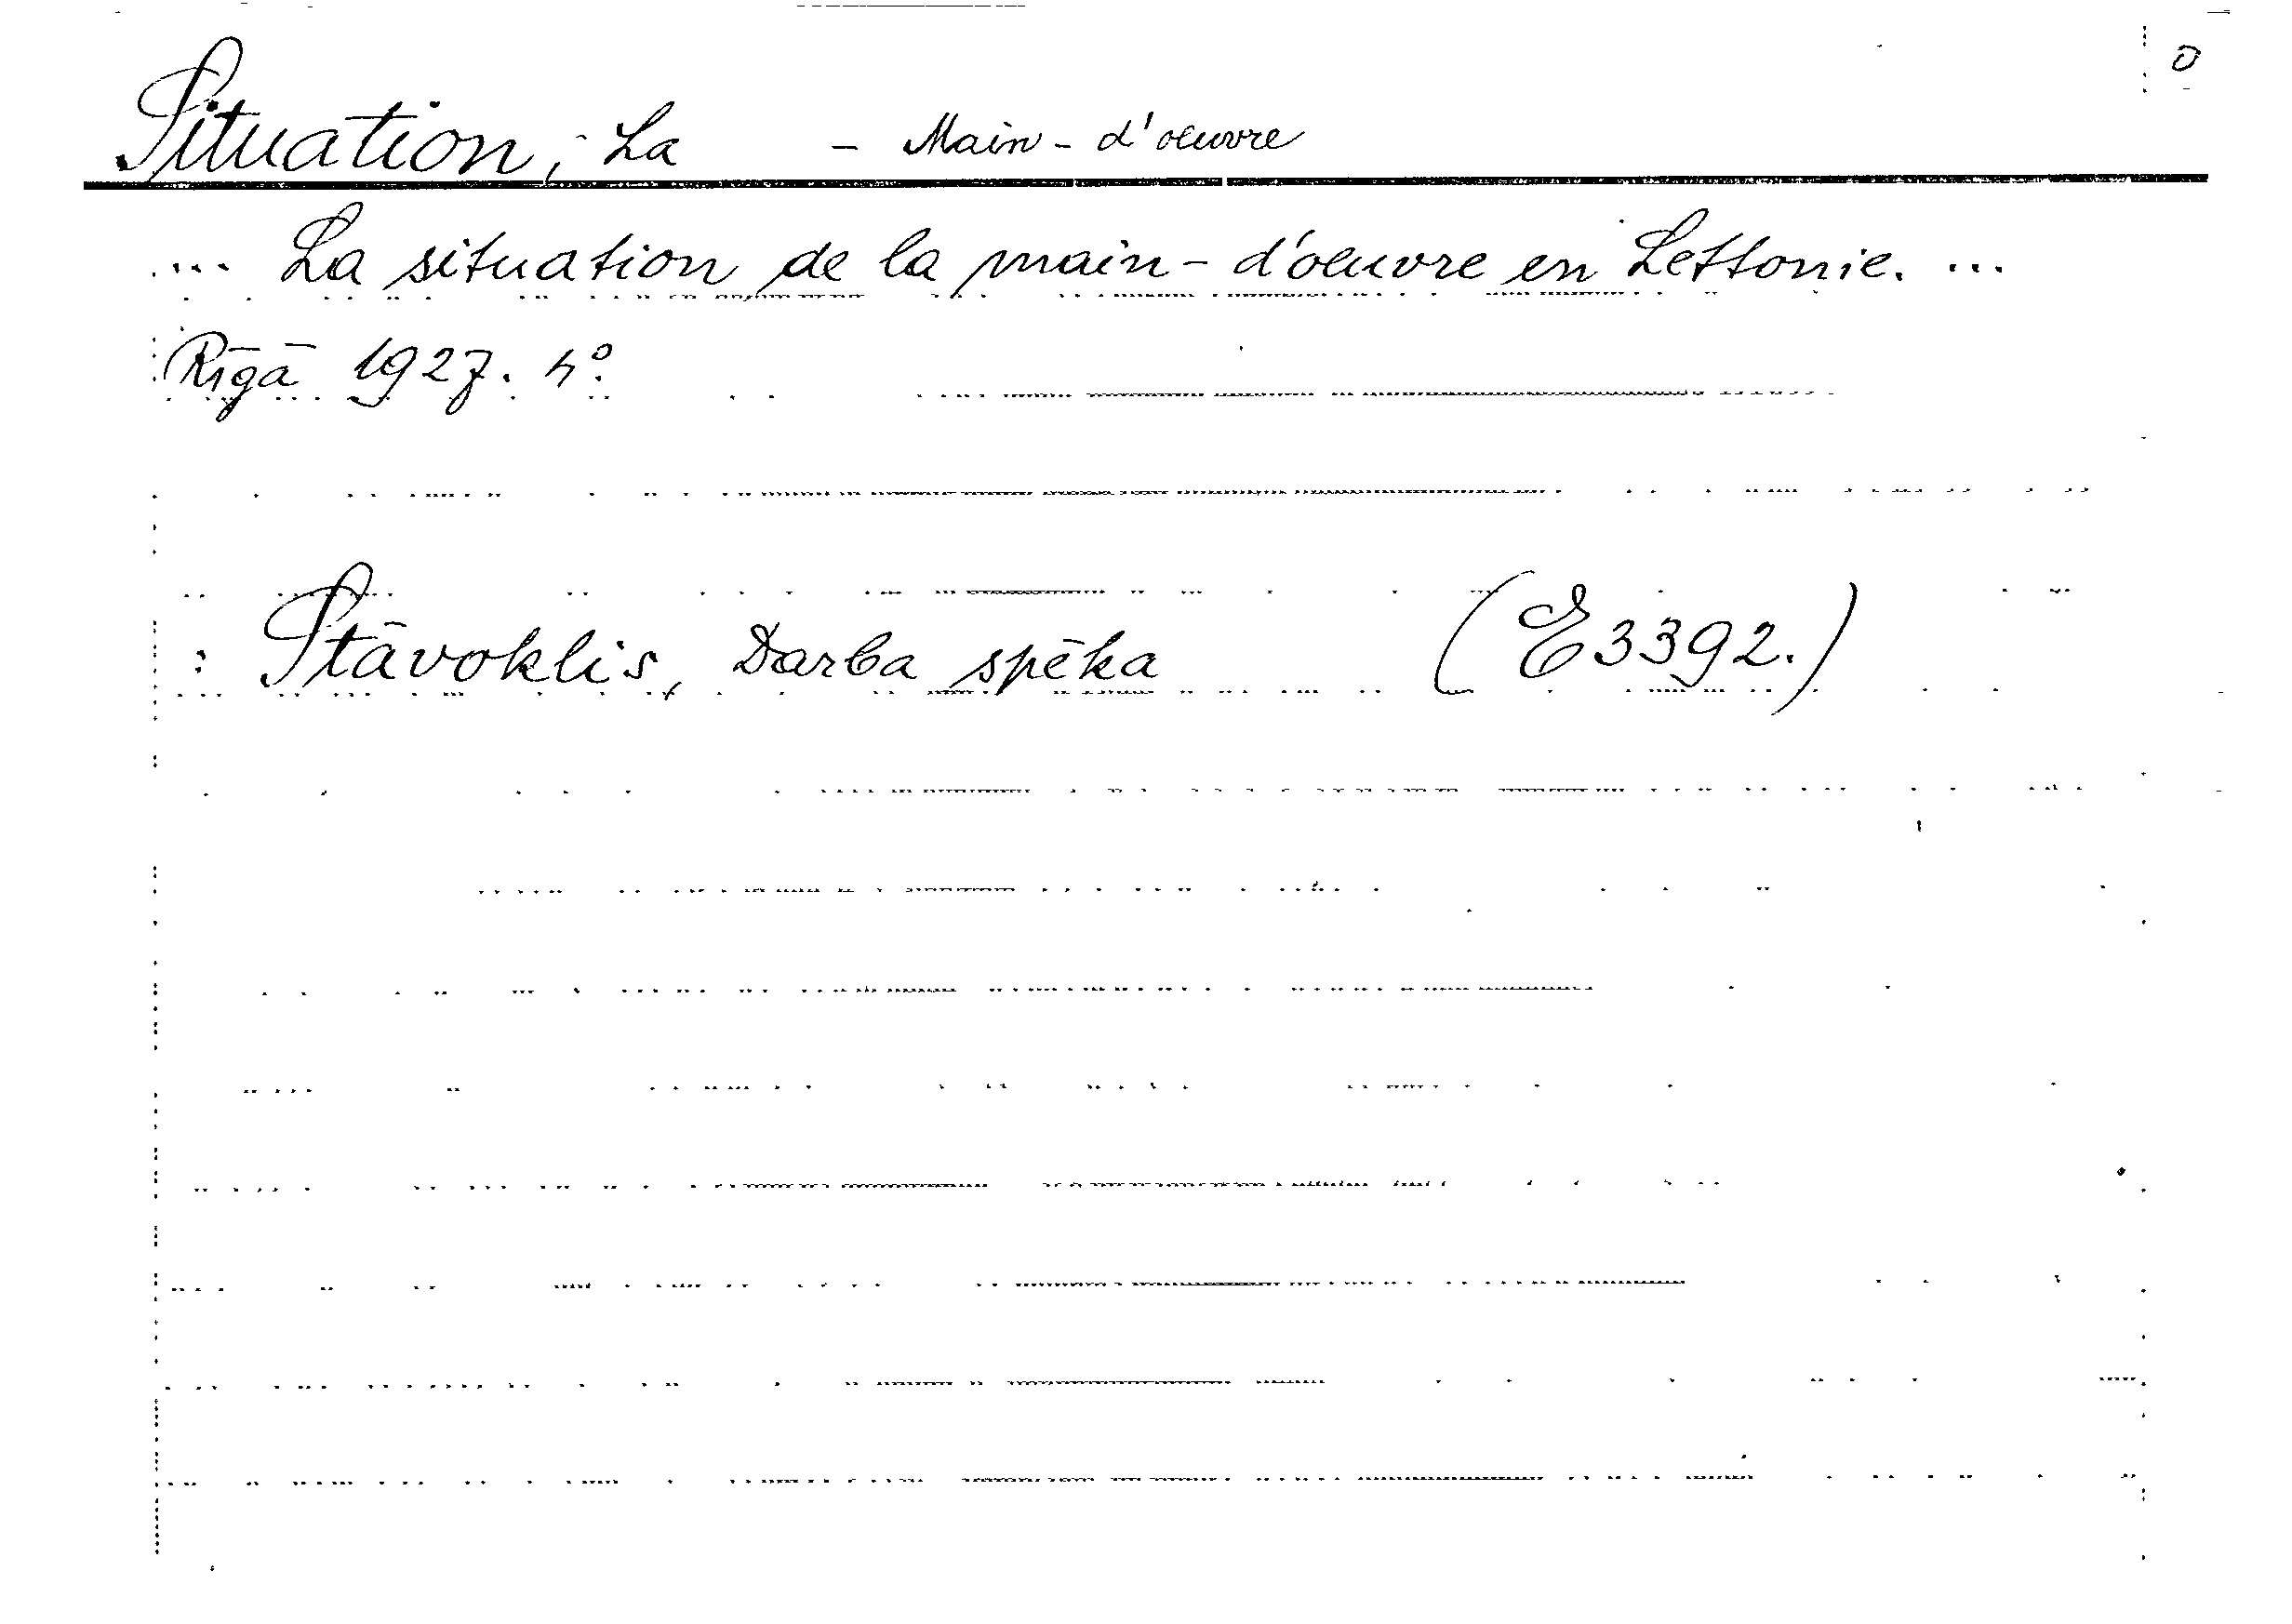 Situation, La - Main-d'oeuvre
... La situation de la main-d'oeuvre en Lettonie. ...
Rīgā 1927. 4°.
: Stāvoklis, Darba spēka (E3392.)